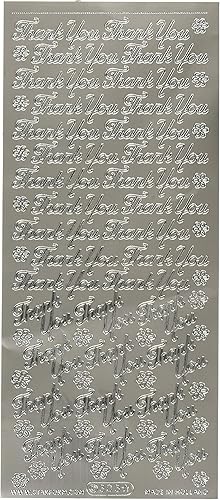 Thank You Thank You
Thank You Thank You
Thank You Thank You
Thank You Thank You
Thank You Thank You
Thank You Thank You
Thank You Thank You
Thank You Thank You
Thank You Thank You
Thank You Thank You
Thank You Thank You
Thank Thank Thank
You You You
Thank Thank Thank
You You You
Thank Thank Thank
You You You
Thank Thank Thank
You You You
MADE IN HOLLAND